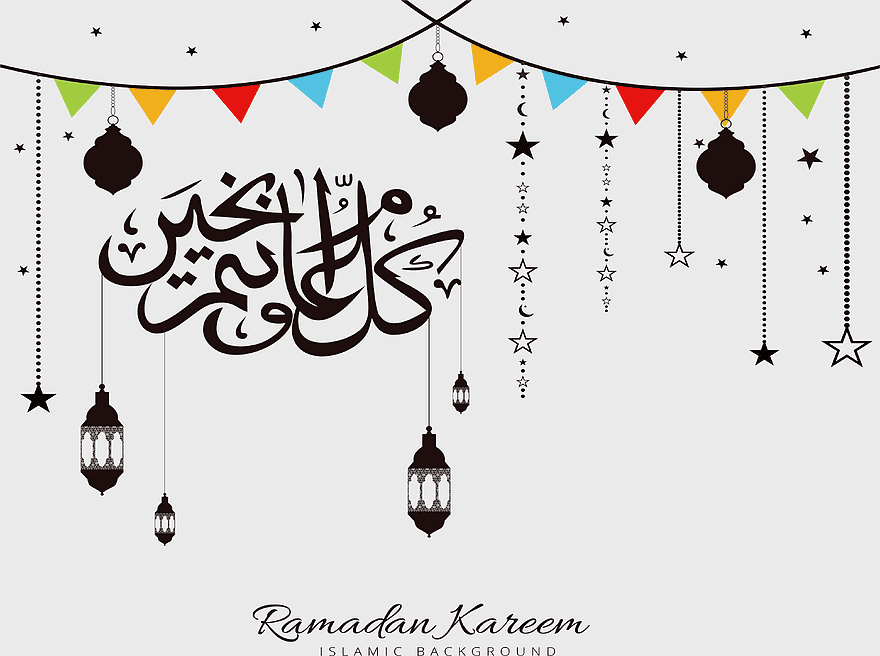 كل عام وأنتم بخير
Ramadan Kareem
ISLAMIC BACKGROUND